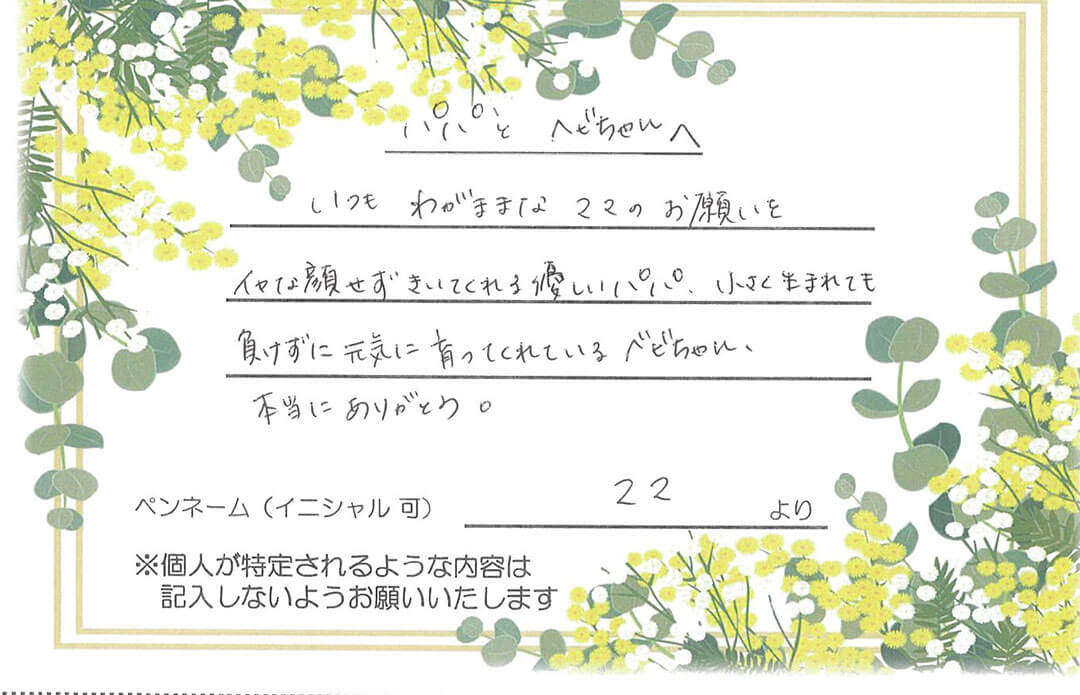 パパと ベビちゃんへ
いつも わがままな ママの お願いを
イヤな顔せず きいてくれる優しいパパ、小さく生まれても
負けずに元気に育ってくれているベビちゃん、
本当にありがとう。
ペンネーム（イニシャル 可） ママ より
※個人が特定されるような内容は
記入しないようお願いいたします